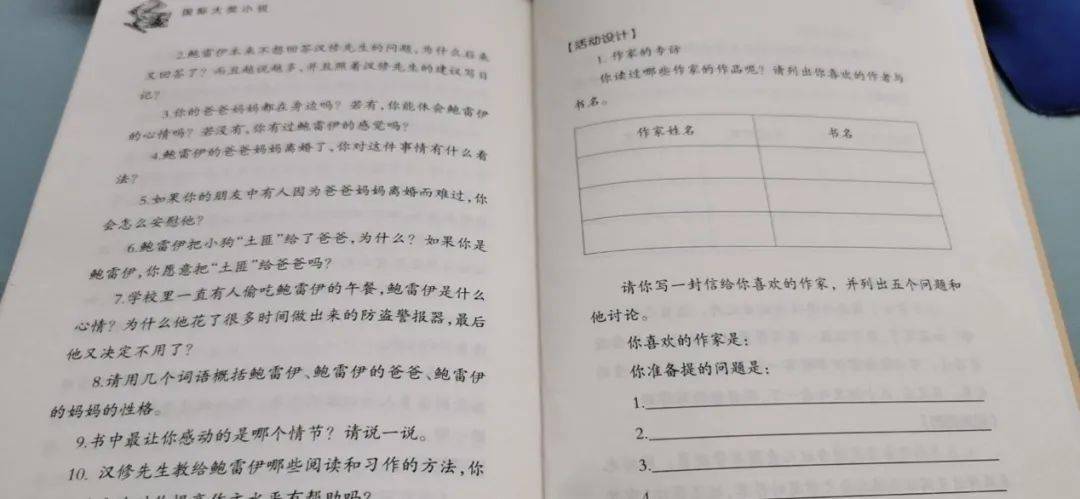 国际大奖小说
2.鲍雷伊本来不想回答汉修先生的问题,为什么后来
又回答了?而且越说越多,并且照着汉修先生的建议写日
记?
3.你的爸爸妈妈都在身边吗?若有,你能体会鲍雷伊
的心情吗?若没有,你有过鲍雷伊的感觉吗?
4.鲍雷伊的爸爸妈妈离婚了,你对这件事情有什么看
法?
5.如果你的朋友中有人因为爸爸妈妈离婚而难过,你
会怎么安慰他?
6.鲍雷伊把小狗“土匪”给了爸爸,为什么?如果你是
鲍雷伊,你愿意把“土匪”给爸爸吗?
7.学校里一直有人偷吃鲍雷伊的午餐,鲍雷伊是什么
心情?为什么他花了很多时间做出来的防盗警报器,最后
他又决定不用了?
8.请用几个词语概括鲍雷伊、鲍雷伊的爸爸、鲍雷伊
的妈妈的性格。
9.书中最让你感动的是哪个情节?请说一说。
10.汉修先生教给鲍雷伊哪些阅读和习作的方法,你
【活动设计】
1.作家的专访
你读过哪些作家的作品呢?请列出你喜欢的作者与
书名。
作家姓名 书名
请你写一封信给你喜欢的作家,并列出五个问题和
他讨论。
你喜欢的作家是:
你准备提的问题是:
1.
2.
3.